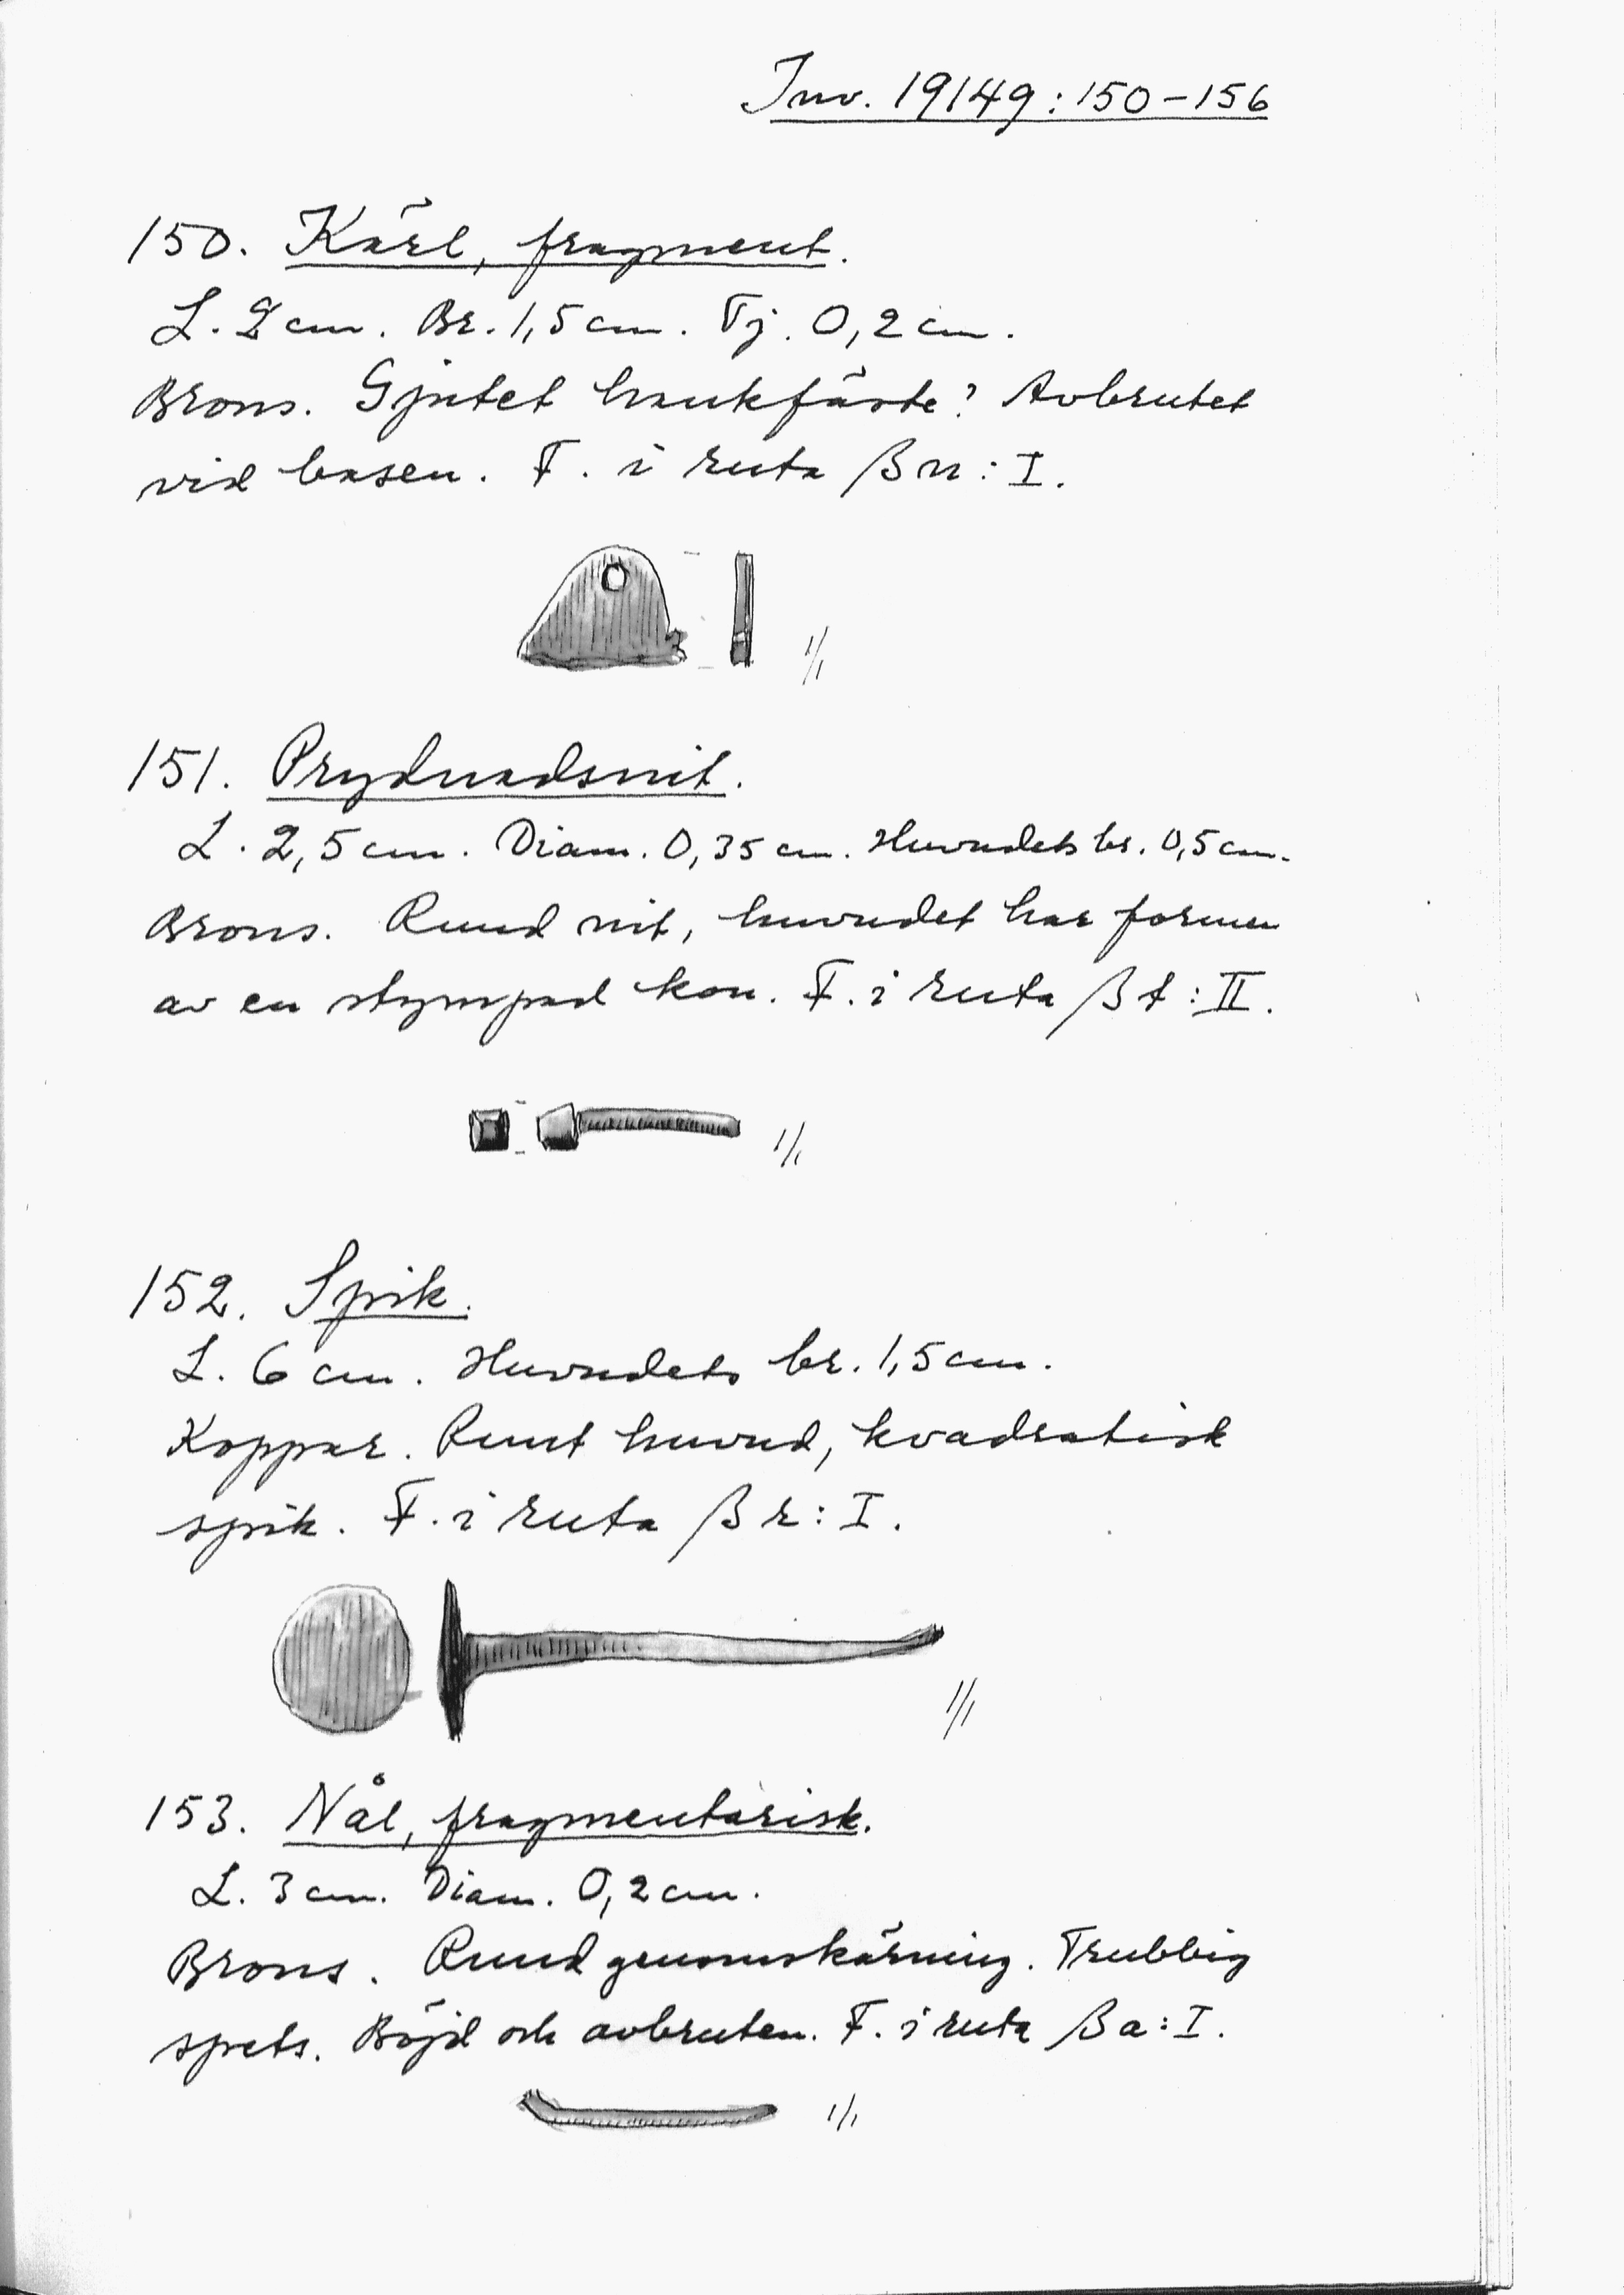 Inv. 19149:150-156
150. Kärl, fragment.
L. 2 cm. Br. 1,5 cm. Tj. 0,2 cm.
Brons. Gjutet hankfäste? Avbrutet
vid basen. F. i ruta βn:I.
1/1
151. Prydnadsnit.
L. 2,5 cm. Diam. 0,35 cm. Huvudets br. 0,5 cm.
Brons. Rund nit, huvudet har formen
av en stympad kon. F. i ruta βt:II.
1/1
152. Spik.
L. 6 cm. Huvudets br. 1,5 cm.
Koppar. Runt huvud, kvadratisk
spik. F. i ruta βr:I.
1/1
153. Nål, fragmentarisk.
L. 3 cm. Diam. 0,2 cm.
Brons. Rund genomskärning. Trubbig
spets. Böjd och avbruten. F. i ruta βa:I.
1/1